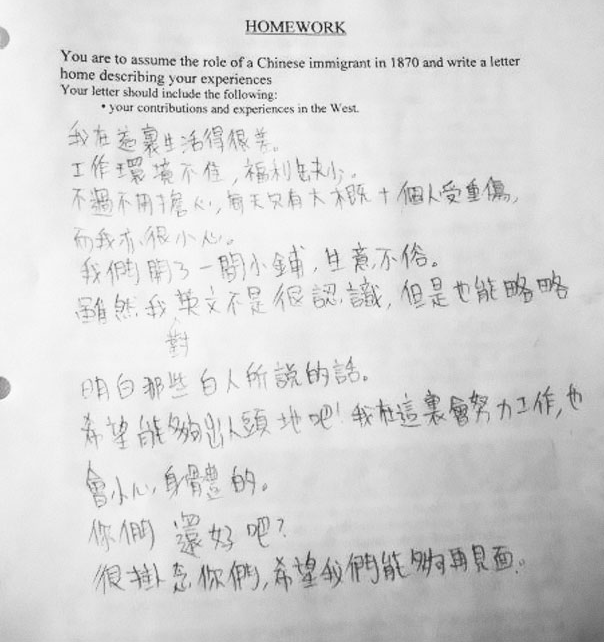 HOMEWORK
You are to assume the role of a Chinese immigrant in 1870 and write a letter
home describing your experiences
Your letter should include the following:
• your contributions and experiences in the West.
我在這裏生活得很差。
工作環境不佳,福利缺少。
不過不用擔心,每天只有大概十個人受重傷,
而我亦很小心。
我們開了一間小鋪,生意不俗。
雖然我英文不是很認識,但是也能略略
對
明白那些白人所說的話。
希望能夠出人頭地吧!我在這裏會努力工作,也
會小心身體的。
你們還好吧?
很掛念你們,希望我們能夠再見面。